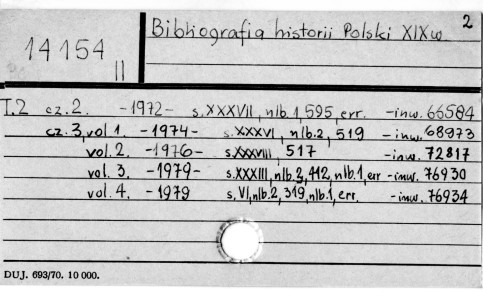 Bibliografia historii Polski XIXw. 2
14154 II
T.2 cz.2. -1972- s.XXXVII, nlb.1, 595, err. -inw. 66584
cz.3, vol 1. -1974- s.XXXVI, nlb.2, 519 -inw. 68973
vol.2. -1976- s.XXXVIII, 517 -inw. 72817
vol.3. -1979- s.XXXIII, nlb.2, 412, nlb.1, err -inw. 76930
vol.4. -1979 s.VI, nlb.2, 319, nlb.1, err. -inw. 76934
DUJ. 693/70. 10 000.